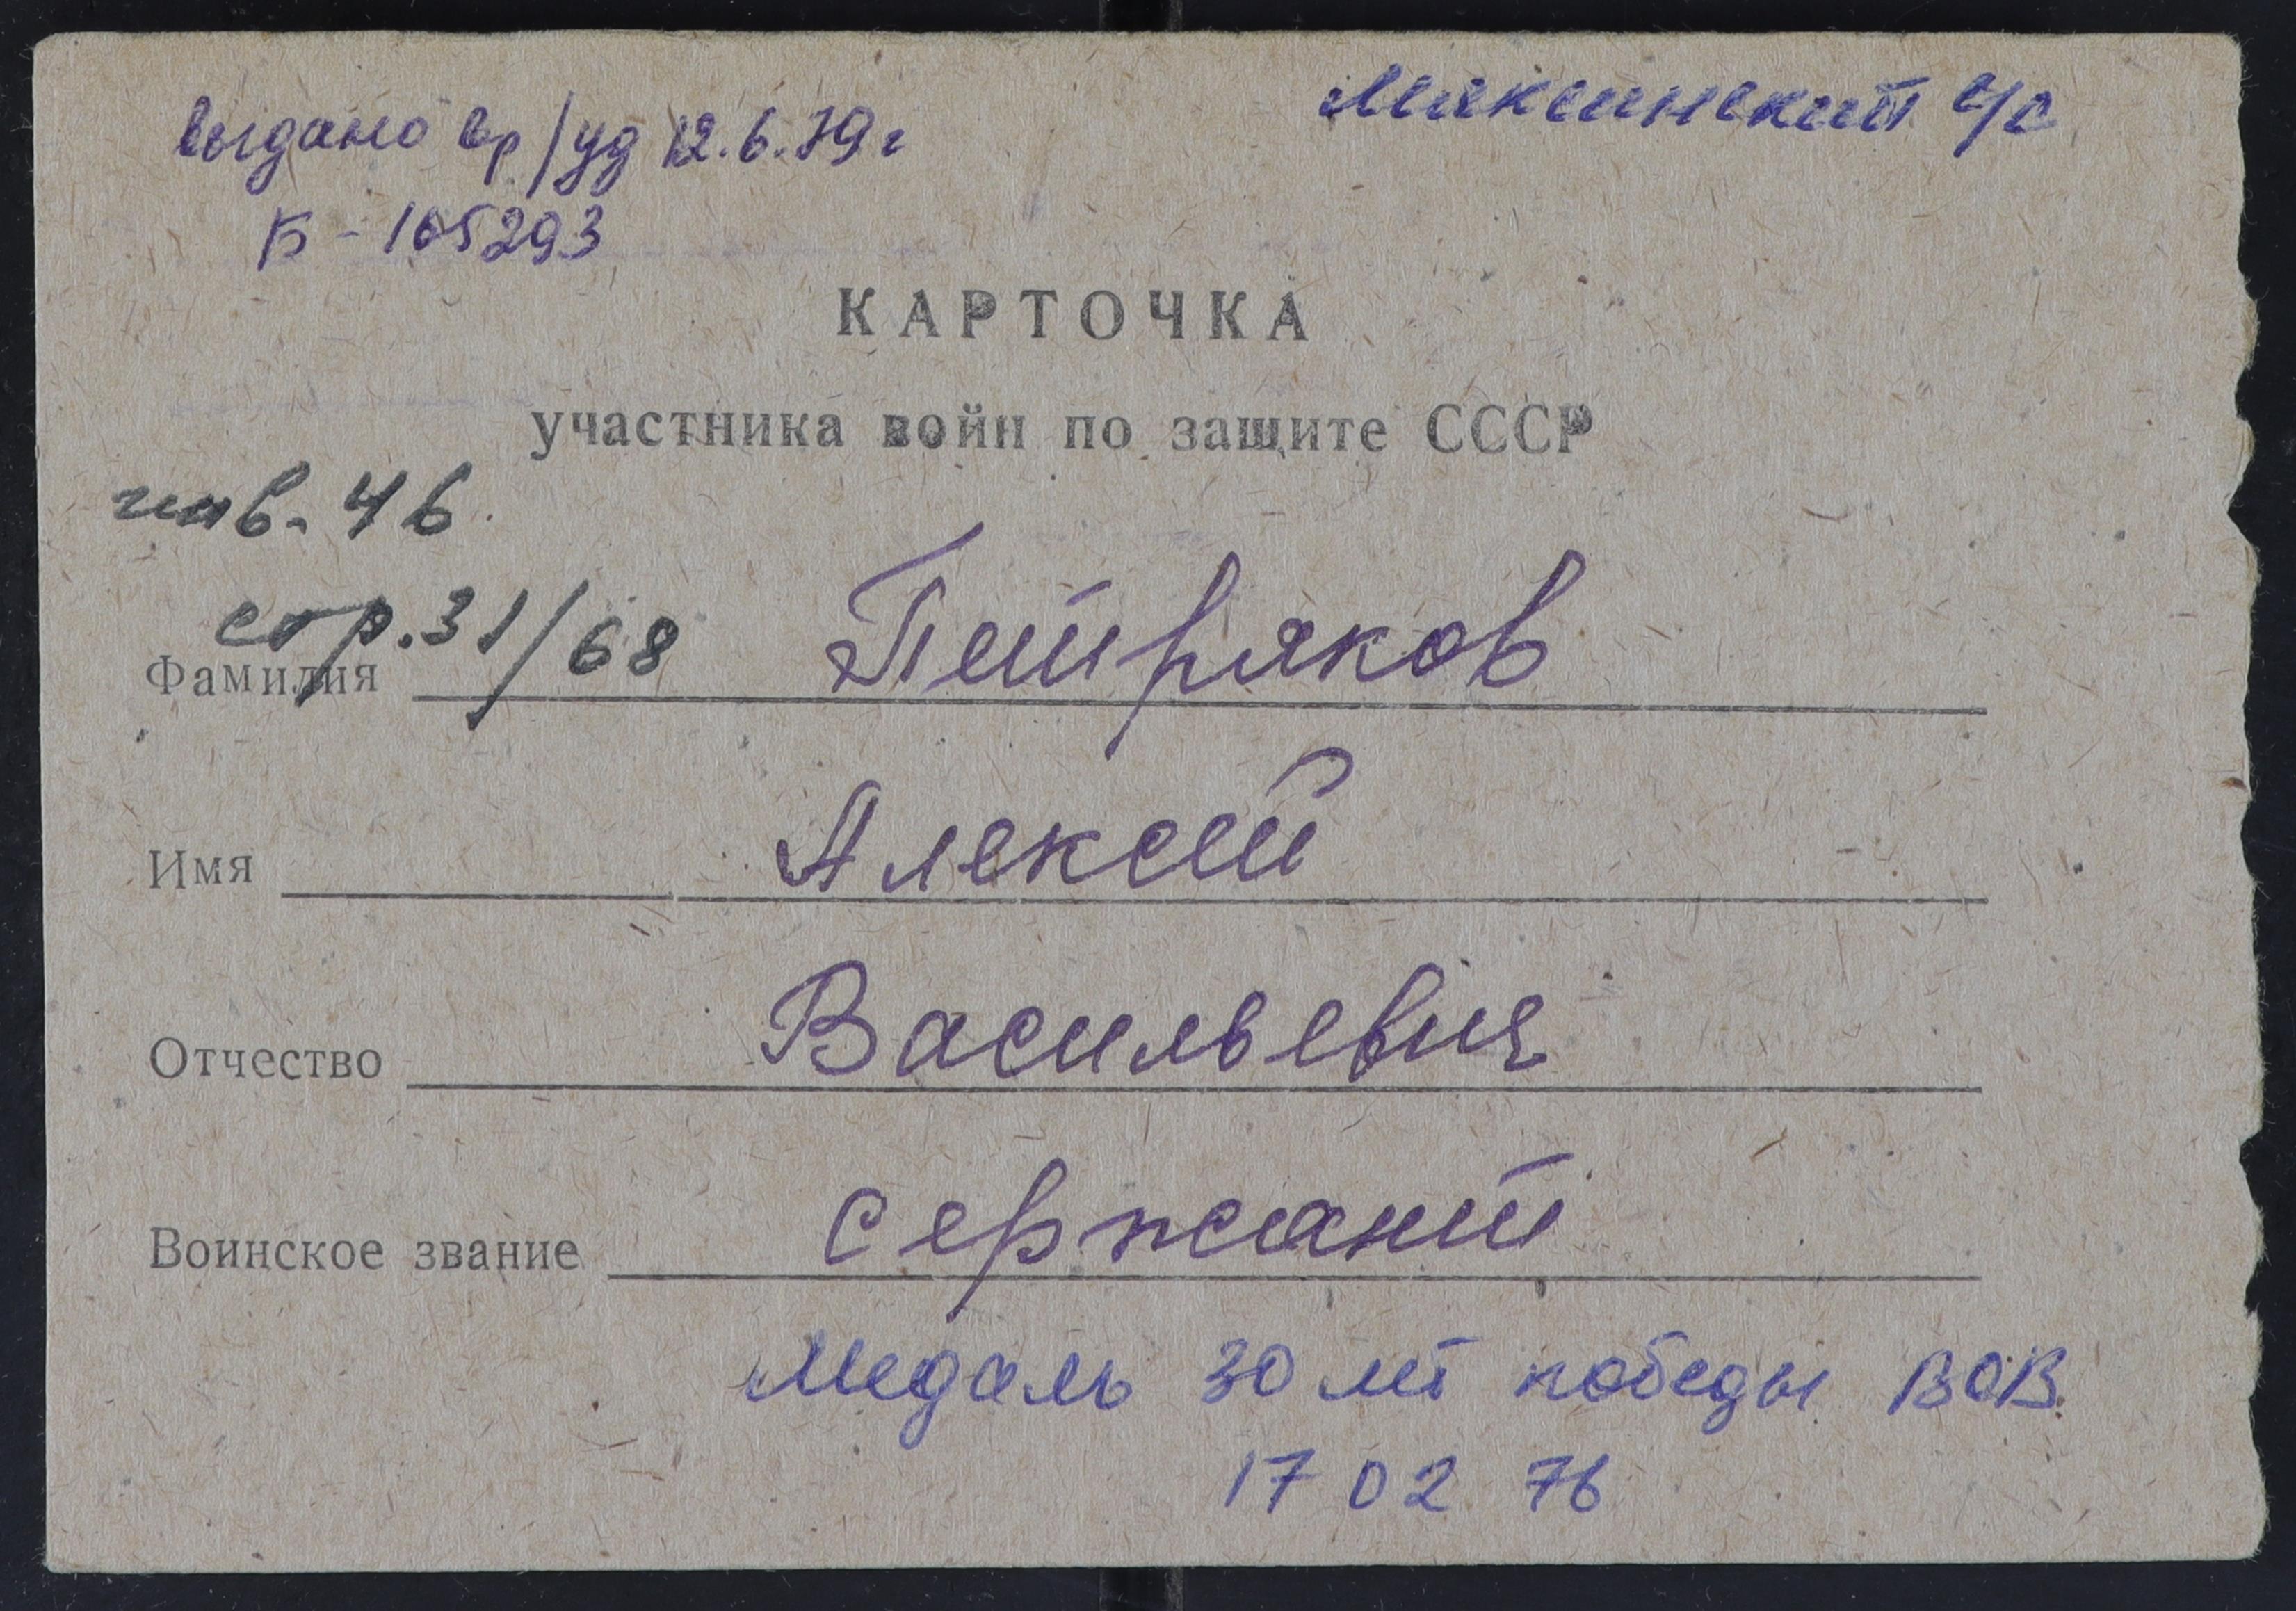 Выдано вр/уд 12.6.79г
Мяксинский с/с
Б-165293
КАРТОЧКА
участника войн по защите СССР
инв. 46
стр. 31/68
Фамилия Петряков
Имя Алексей
Отчество Васильевич
Воинское звание сержант
Медаль 30 лет победы ВОВ.
17 02 76